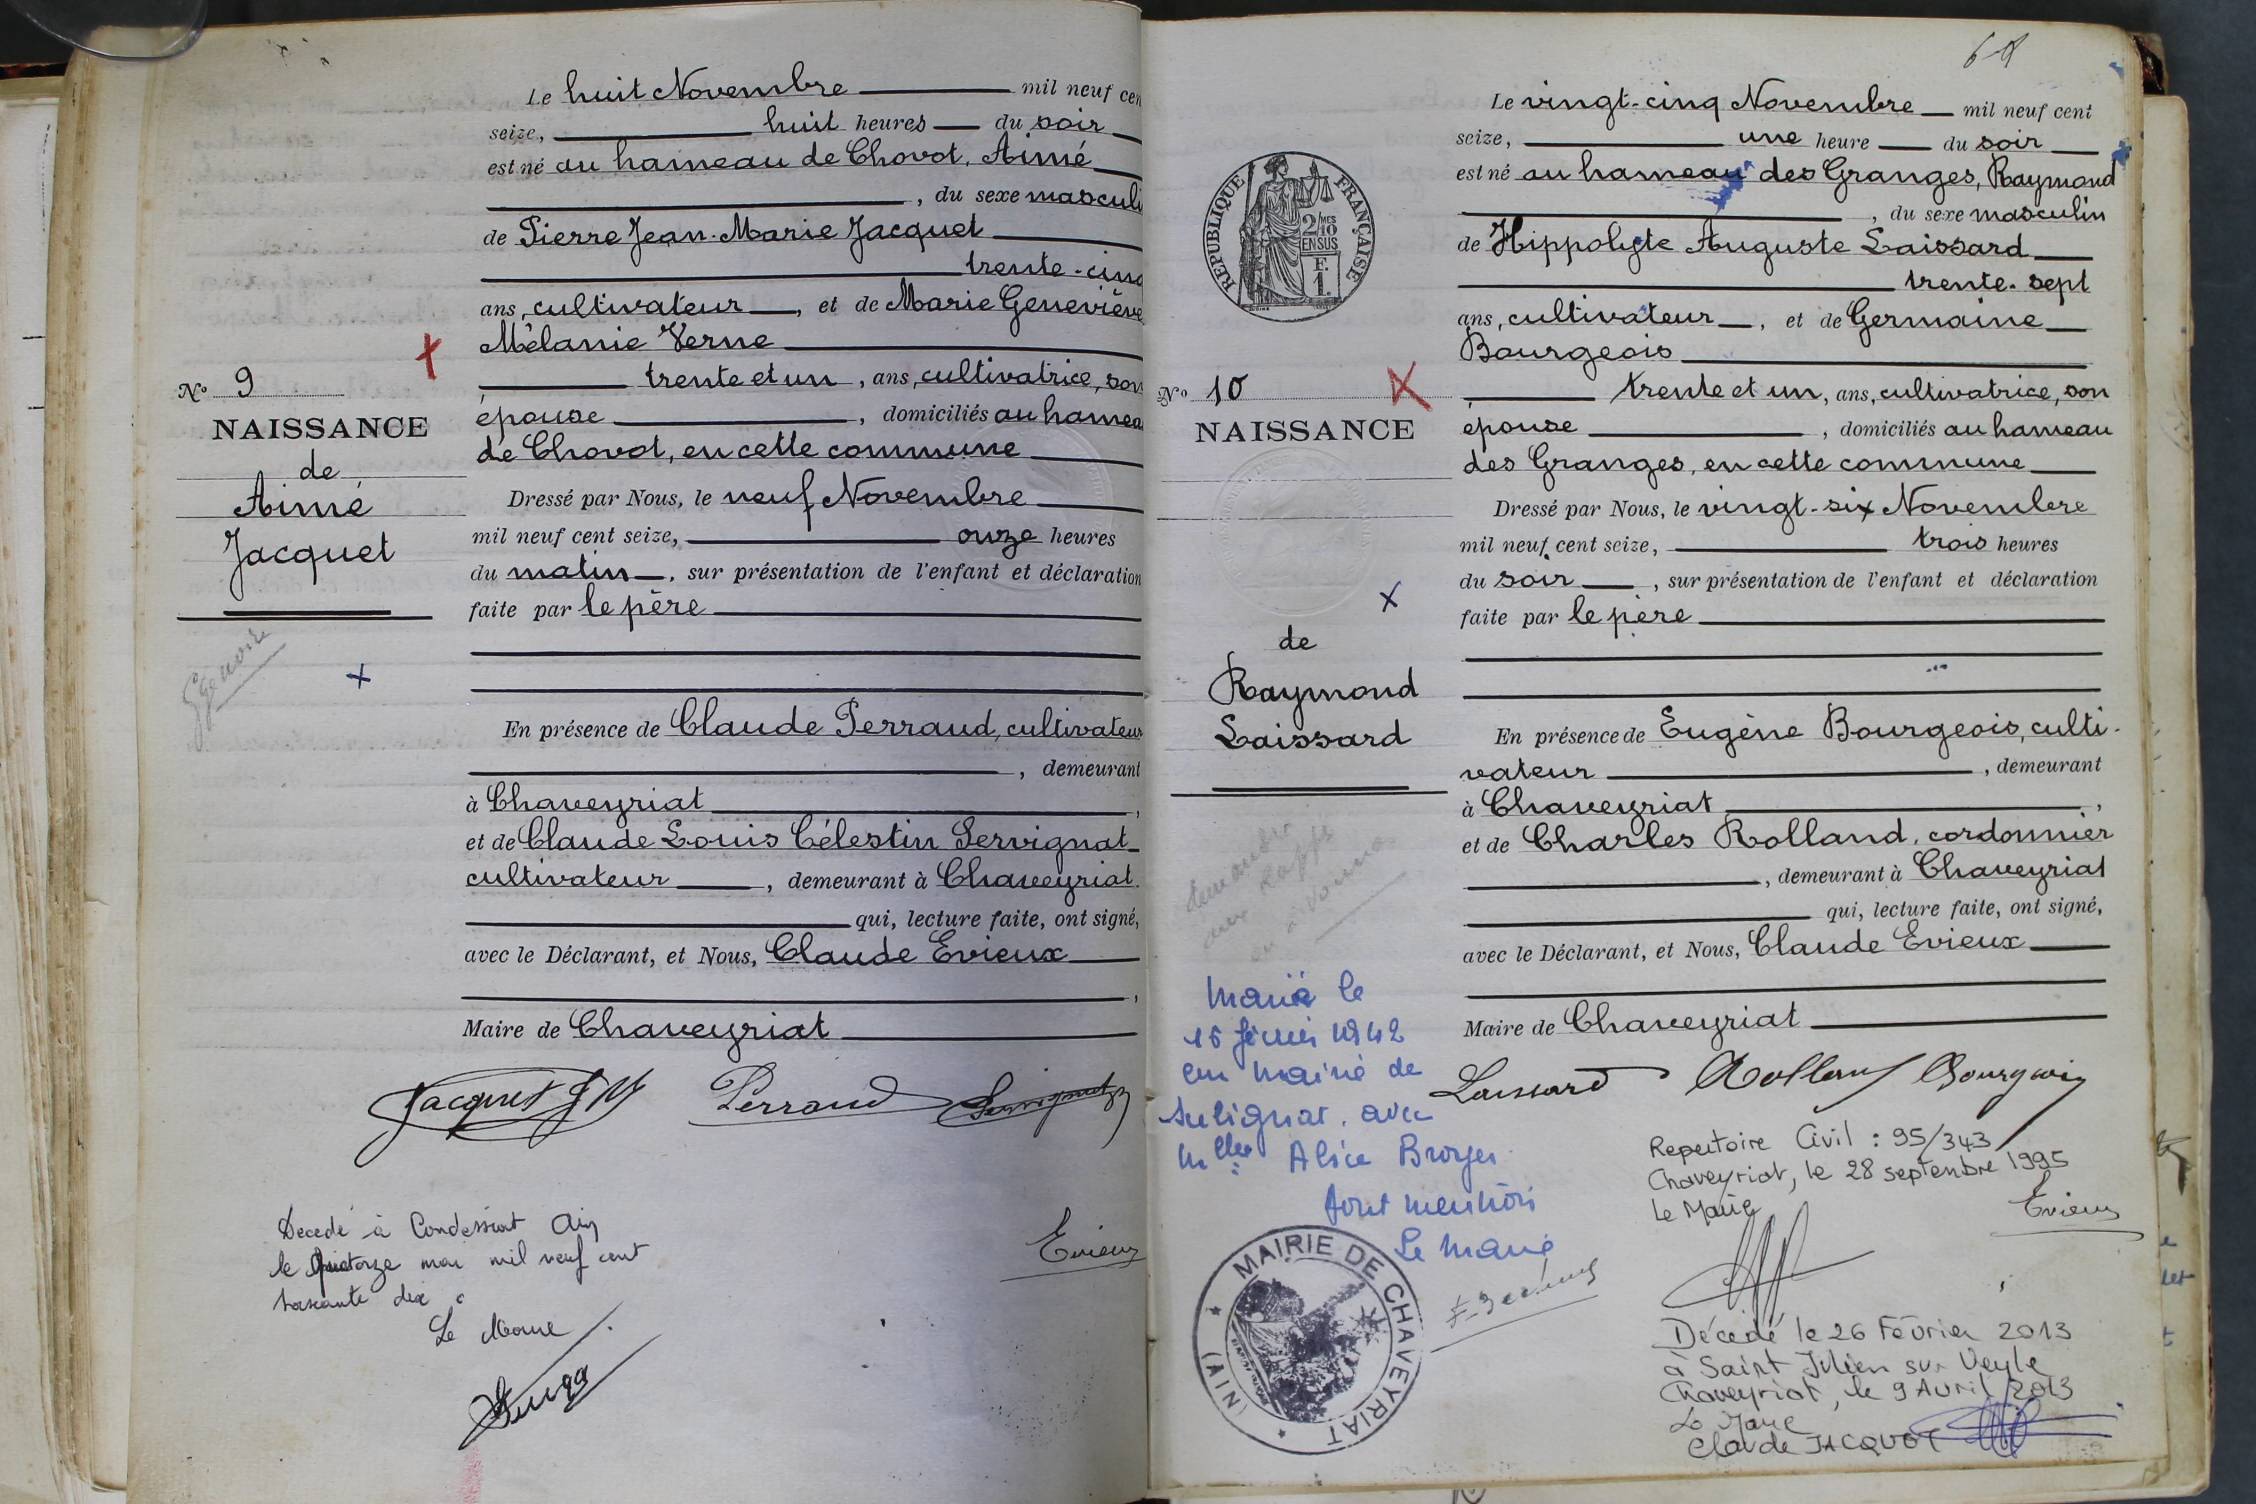 Le huit Novembre mil neuf cen
seize, huit heures du soir
est né au hameau de Chovot, Aimé
, du sexe masculi
de Pierre Jean-Marie Jacquet
trente-cinq
ans, cultivateur, et de Marie Geneviève
Mélanie Verne
trente et un, ans, cultivatrice, son
épouse, domiciliés au hamea
de Chovot, en cette commune
Dressé par Nous, le neuf Novembre
mil neuf cent seize, onze heures
du matin, sur présentation de l'enfant et déclaration
faite par le père
En présence de Claude Perraud, cultivateur
, demeurant
à Chaveyriat,
et de Claude Louis Célestin Servignat
cultivateur, demeurant à Chaveyriat.
qui, lecture faite, ont signé,
avec le Déclarant, et Nous, Claude Evieux
,
Maire de Chaveyriat
No 9
NAISSANCE
de
Aimé
Jacquet
Jacquet J M Perraud Servignat
Evieux
Décédé à Condeissiat Ain
le quatorze mai mil neuf cent
soixante dix
Le Maire
68
Le vingt-cinq Novembre mil neuf cent
seize, une heure du soir
est né au hameau des Granges, Raymond
, du sexe masculin
de Hippolyte Auguste Laissard
trente-sept
ans, cultivateur, et de Germaine
Bourgeois
trente et un, ans, cultivatrice, son
épouse, domiciliés au hameau
des Granges, en cette commune
Dressé par Nous, le vingt-six Novembre
mil neuf cent seize, trois heures
du soir, sur présentation de l'enfant et déclaration
faite par le père
En présence de Eugène Bourgeois, culti-
vateur, demeurant
à Chaveyriat,
et de Charles Rolland, cordonnier
, demeurant à Chaveyriat
qui, lecture faite, ont signé,
avec le Déclarant, et Nous, Claude Evieux
Maire de Chaveyriat
RÉPUBLIQUE FRANÇAISE
2/10MES
EN SUS
F.
1.
No 10
NAISSANCE
de
Raymond
Laissard
Marié le
en mairie de
Sulignat. avec
Mlle Alice
dont mention
Le Maire
MAIRIE DE CHAVEYRIAT
(AIN)
Laissard Rolland Bourgeois
Evieux
Repertoire Civil : 95/343
Chaveyriat, le 28 septembre 1995
Le Maire
Décédé le 26 Février 2013
à Saint Julien sur Veyle
Chaveyriat, le 9 Avril 2013
Le Maire
Claude JACQUOT